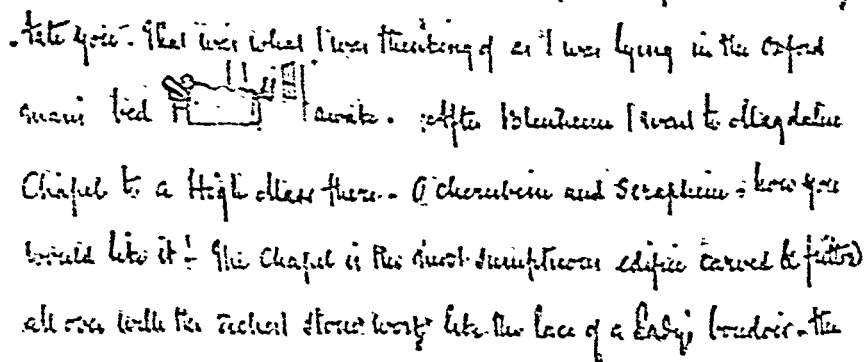 take you. That was what I was thinking of as I was lying in the Oxford
man's bed awake. After Blenheim I went to Magdalene
Chapel to a High Mass there. O cherubim and Seraphim - how you
would like it! The Chapel is the most sumptuous edifice carved & fretted
all over with the richest stone work like the lace of a Lady's boudoir - the